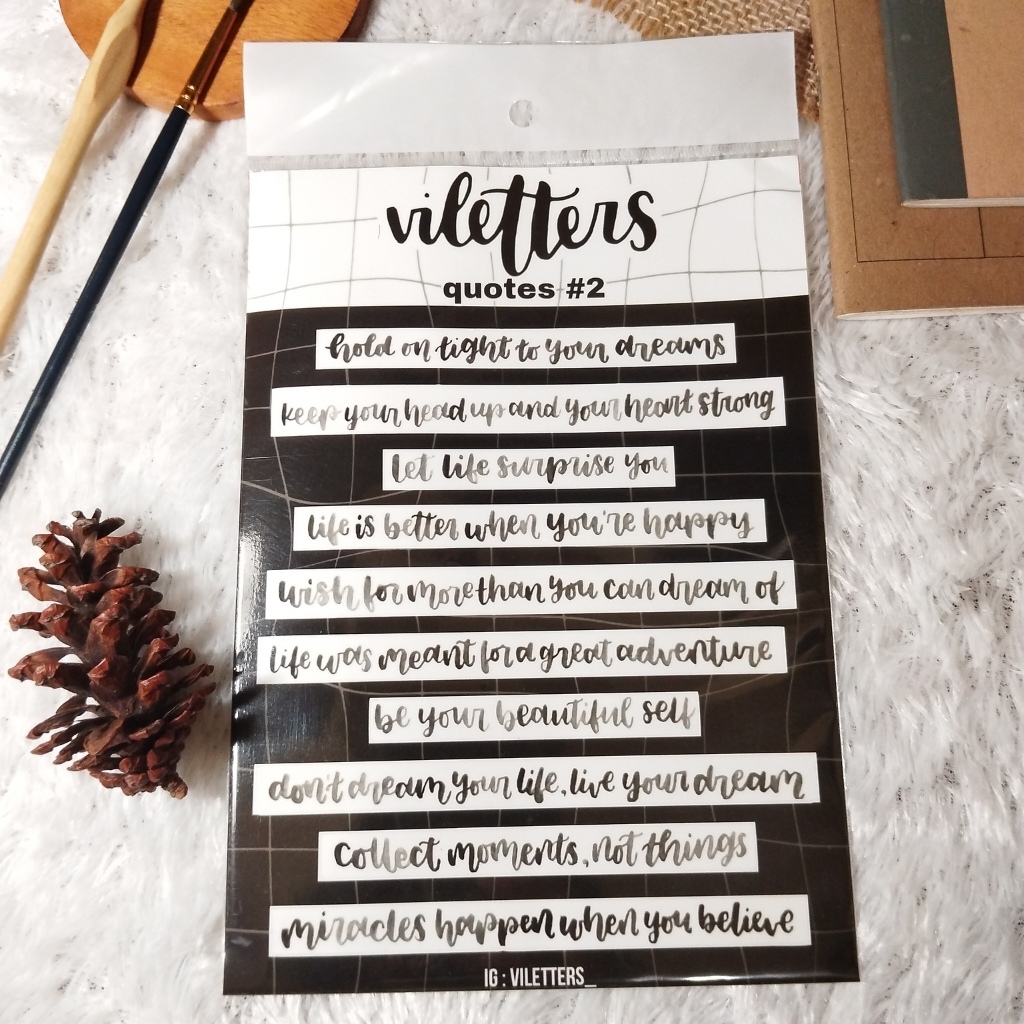 viletters
quotes #2
hold on tight to your dreams
keep your head up and your heart strong
let life surprise you
life is better when you're happy
wish for more than you can dream of
life was meant for a great adventure
be your beautiful self
don't dream your life, live your dream
collect moments, not things
miracles happen when you believe
IG : VILETTERS_